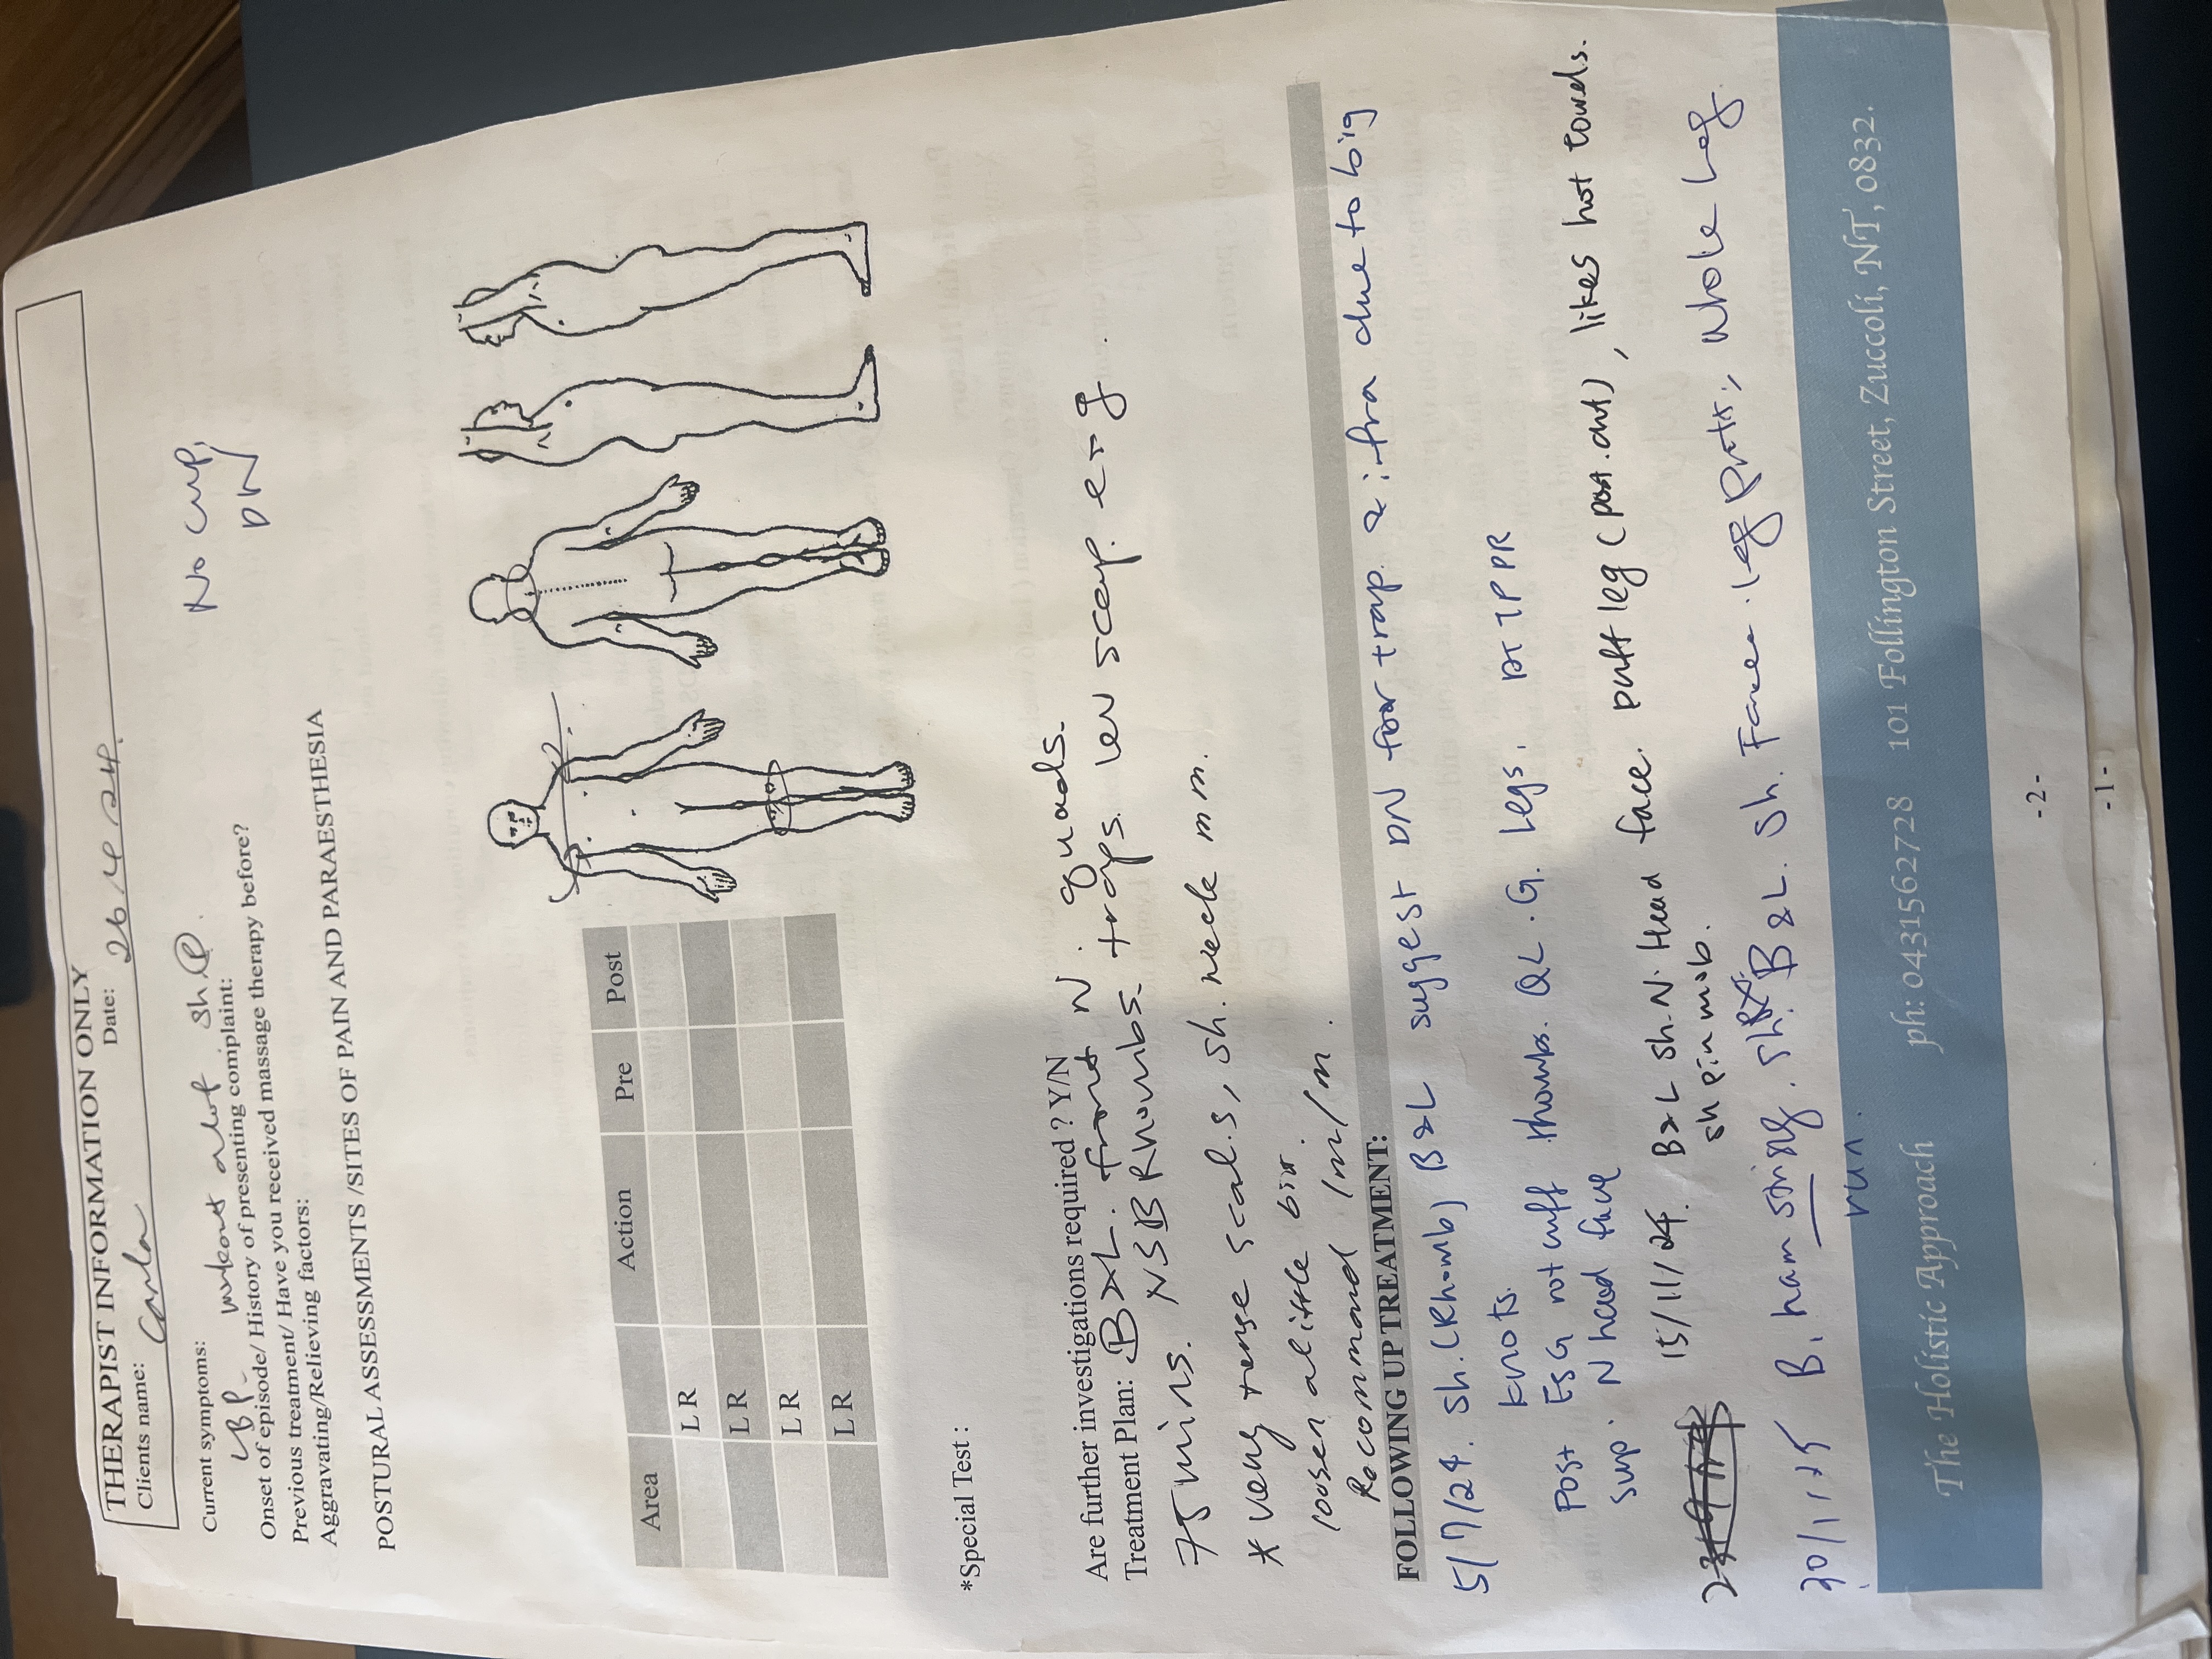 THERAPIST INFORMATION ONLY
Clients name: Carla Date: 26/4/24.
Current symptoms: workout alot sh (P). No cup,
LBP- DN
Onset of episode/ History of presenting complaint:
Previous treatment/ Have you received massage therapy before?
Aggravating/Relieving factors:
POSTURAL ASSESSMENTS /SITES OF PAIN AND PARAESTHESIA
Area Action Pre Post
L R
L R
L R
L R
*Special Test :
Are further investigations required ? Y/N
Treatment Plan: B&L. front N. quads.
75mins. NSB Rhombs. traps. lev scap. erg.
* very tense scal.s, sh. neck mm.
loosen alittle bit.
Recommand 1m/m.
FOLLOWING UP TREATMENT:
5/7/24. sh.(Rhomb) B&L suggest DN for trap. & infra due to big
knots.
Post ESG rot cuff rhombs. QL. G. Legs. DT TP PR
sup. N head face
15/11/24. B&L sh. N. Head face. puff leg (post.ant), likes hot towels.
sh pin mob.
30/1/25 B. hamstring. sh. B&L. sh. Face. leg , whole Leg.
run.
The Holistic Approach ph: 0431562728 101 Follington Street, Zuccoli, NT, 0832.
-2-
-1-